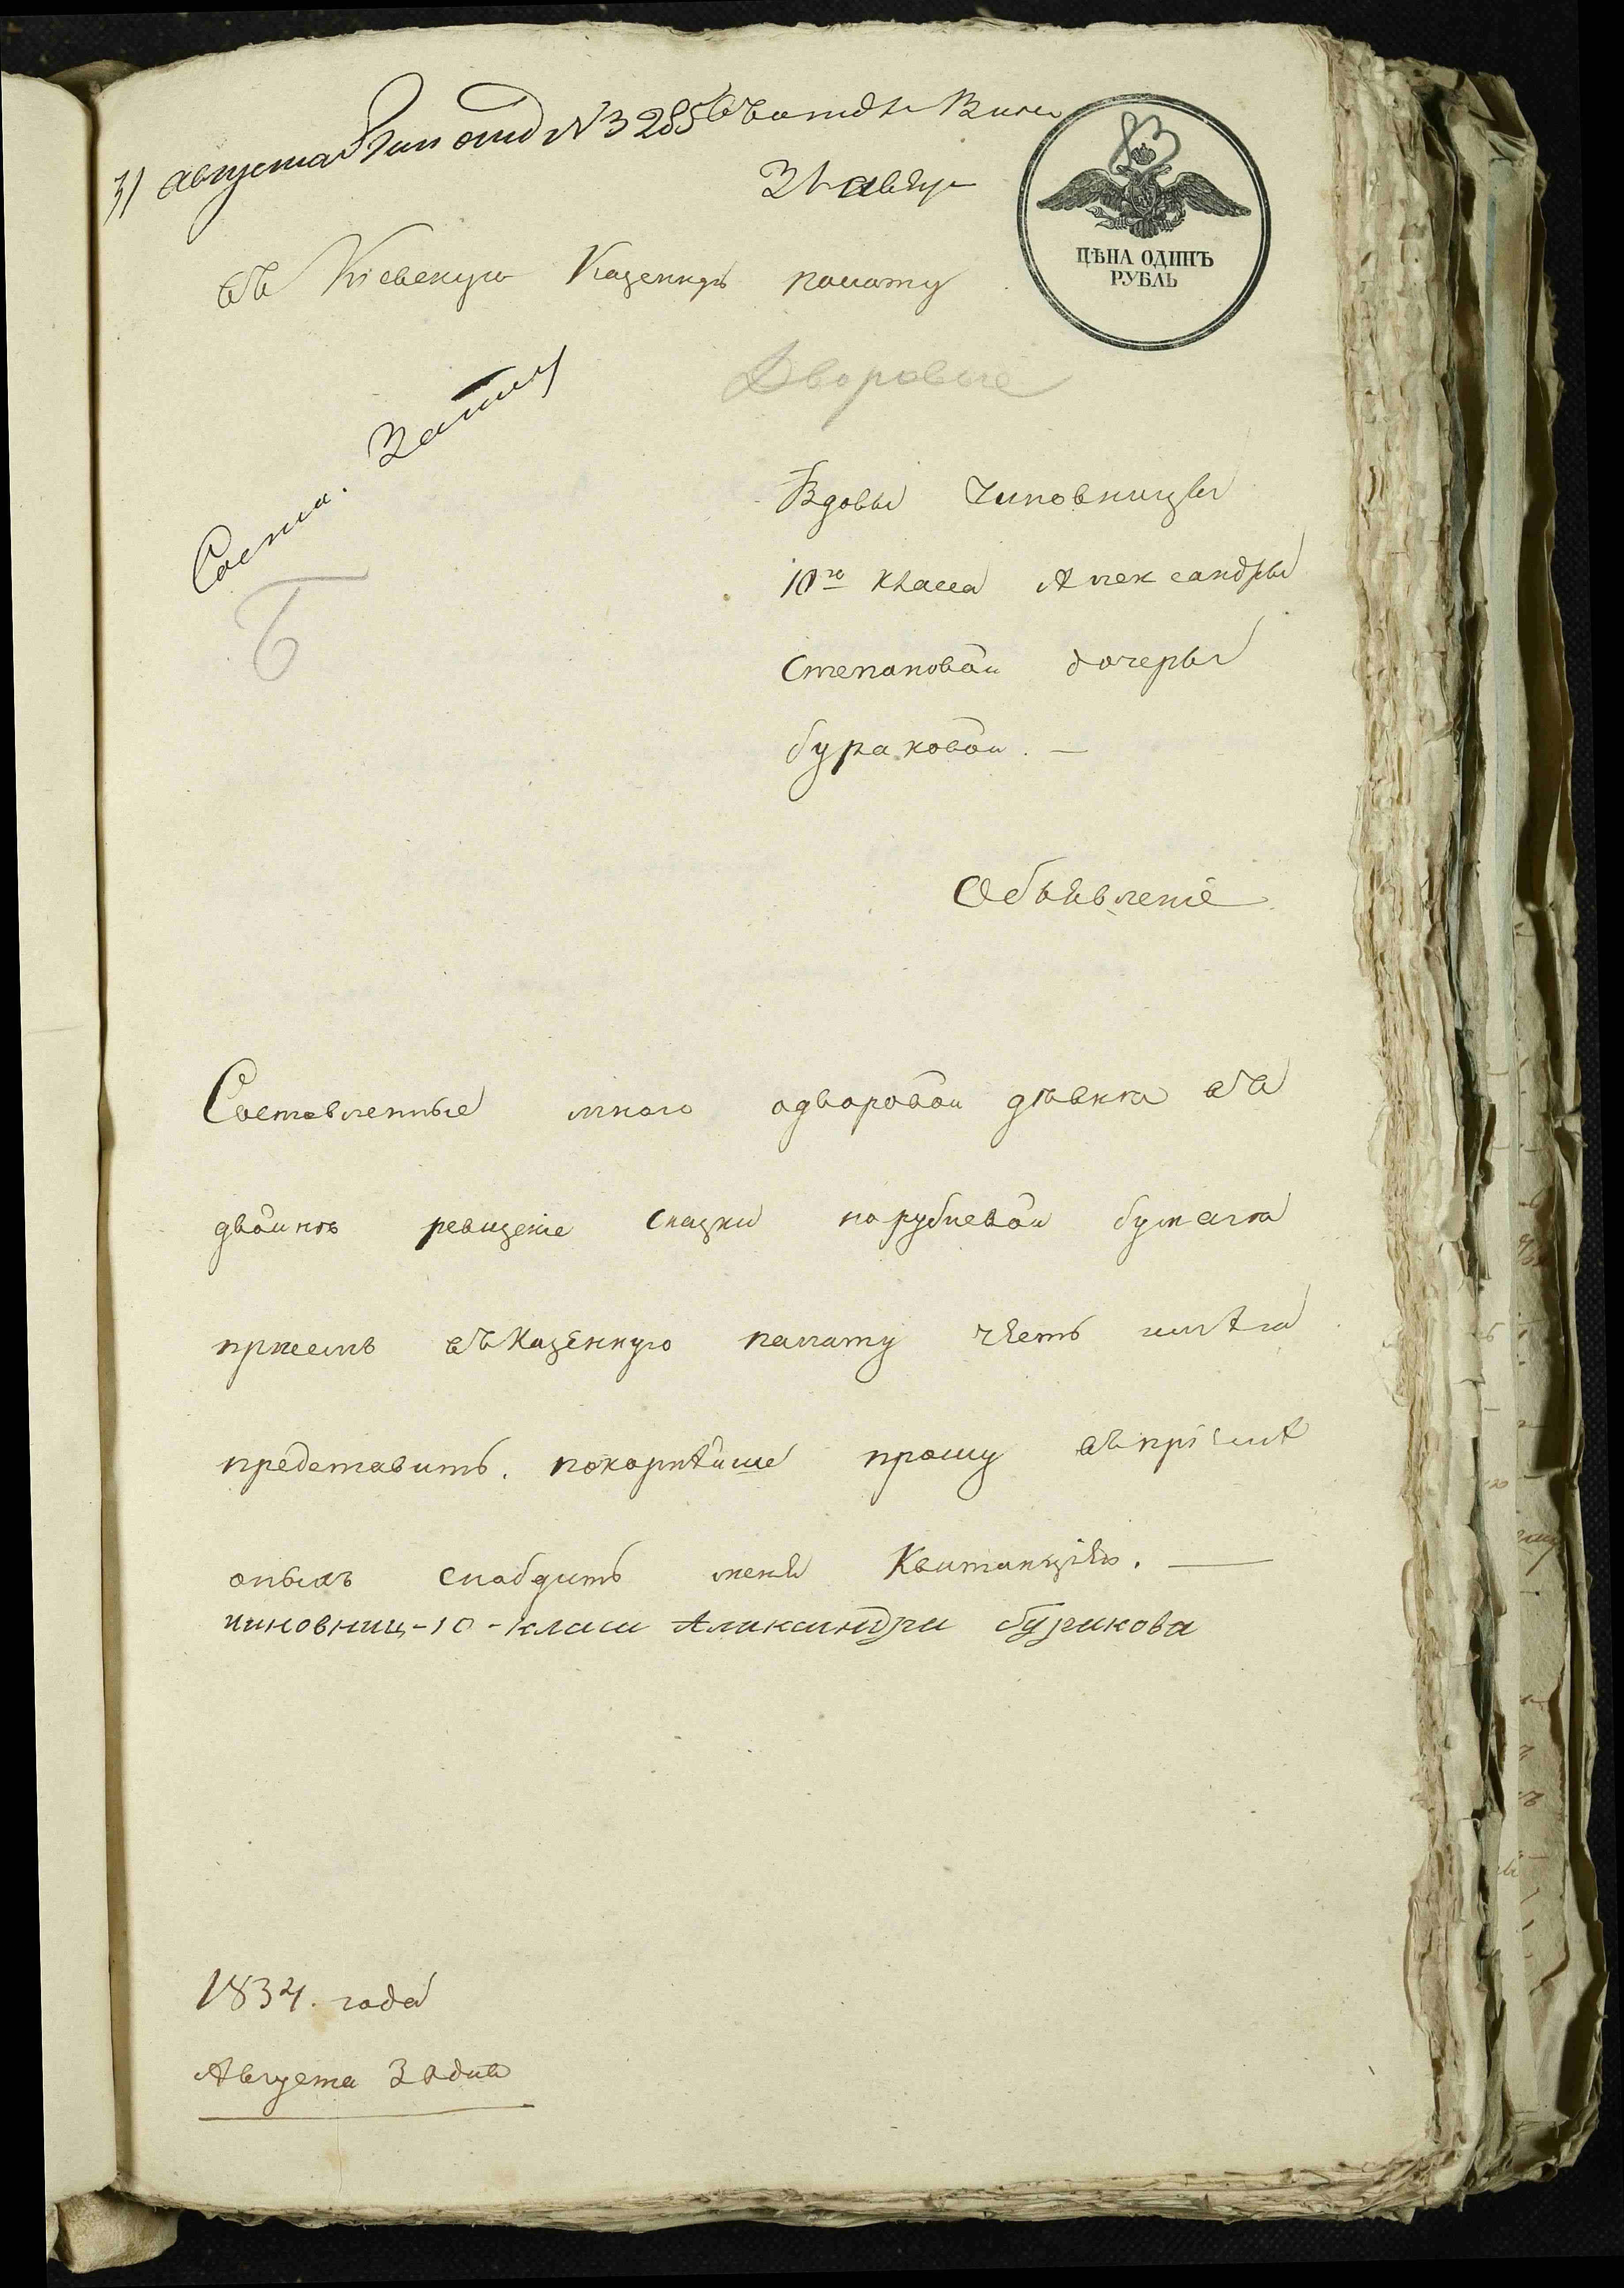 31 августа № 3285
31 авгу
83
ЦѢНА ОДИНЪ
РУБЛЬ
въ Кіевскую Казенную палату
Дворовые
Б
Вдовы Чиновницы
10го класса Александры
Степановой дочеры
бураковой. —
Объявленіе
Составленные мною одворовой девкѣ въ
двойнѣ ревизскіе сказки нарублевой бумагѣ
въ Казенную палату честь имѣя
представить. покорнѣйше прошу въпріемѣ
оныхъ снабдить меня Квитанціею. —
чиновниц-10-класа Аликсандра буракова
1834. года
Августа дня